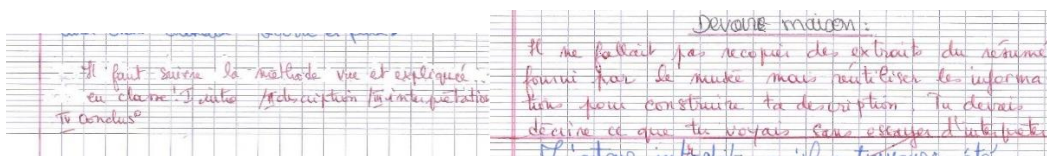 Il faut suivre la méthode vue et expliquée
en classe : I intro / II description / III interprétation
IV Conclusº
Devoir maison :
Il ne fallait pas recopier des extraits du résumé
fourni par le musée mais réutiliser les informa
tions pour construire ta description. Tu devais
décrire ce que tu voyais sans essayer d'interpréter